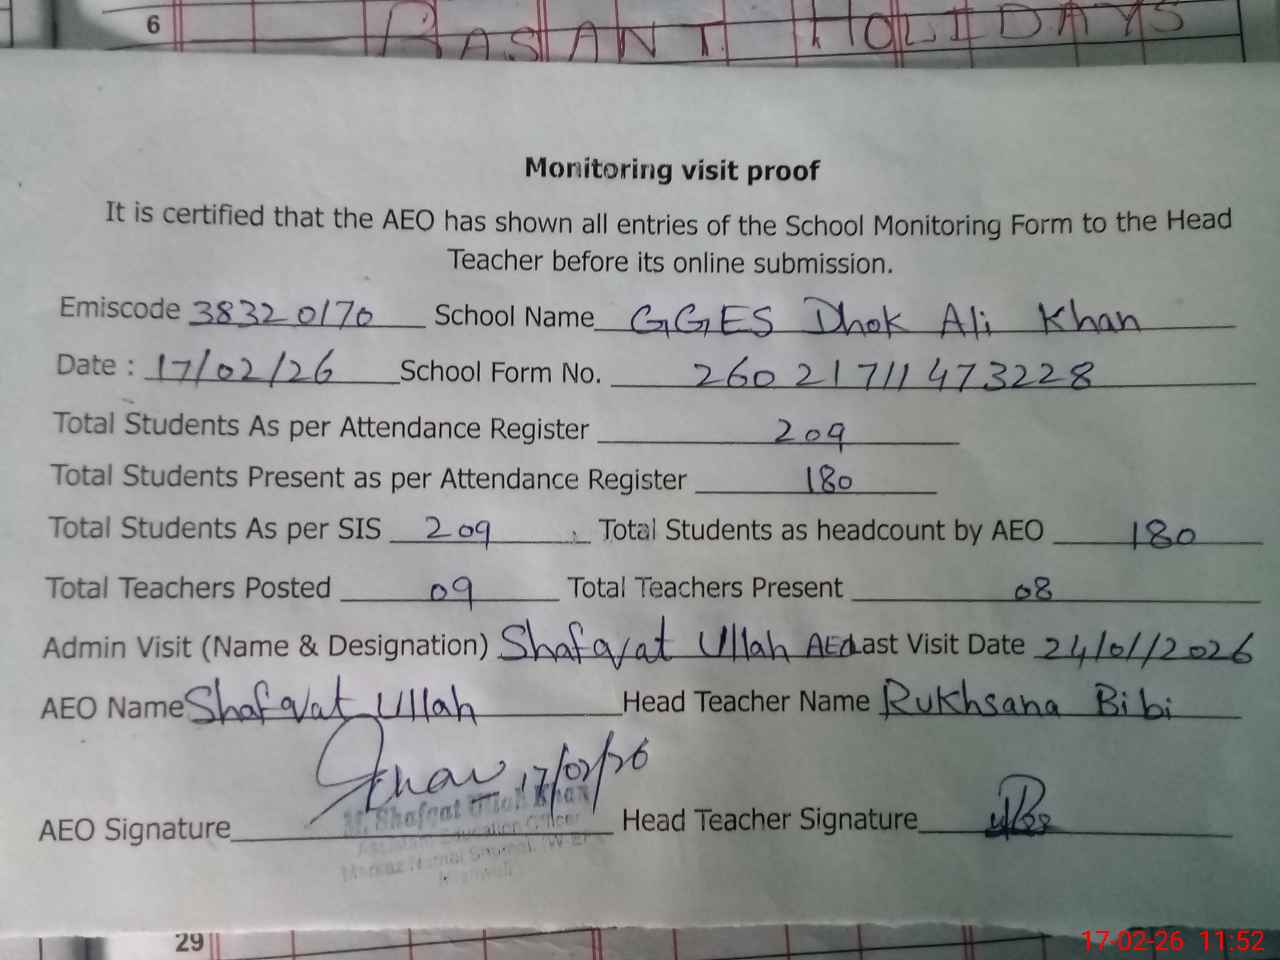 6
BASANT HOLIDAYS
Monitoring visit proof
It is certified that the AEO has shown all entries of the School Monitoring Form to the Head
Teacher before its online submission.
Emiscode 38320170 School Name GGES Dhok Ali Khan
Date : 17/02/26 School Form No. 260 21711 473228
Total Students As per Attendance Register 209
Total Students Present as per Attendance Register 180
Total Students As per SIS 209 Total Students as headcount by AEO 180
Total Teachers Posted 09 Total Teachers Present 08
Admin Visit (Name & Designation) Shafqat Ullah AEO Last Visit Date 24/01/2026
AEO Name Shafqat Ullah Head Teacher Name Rukhsana Bibi
17/02/26
AEO Signature Head Teacher Signature
M. Shafqat Ullah Khan
Assistant Education Officer
Markaz
29
17-02-26 11:52